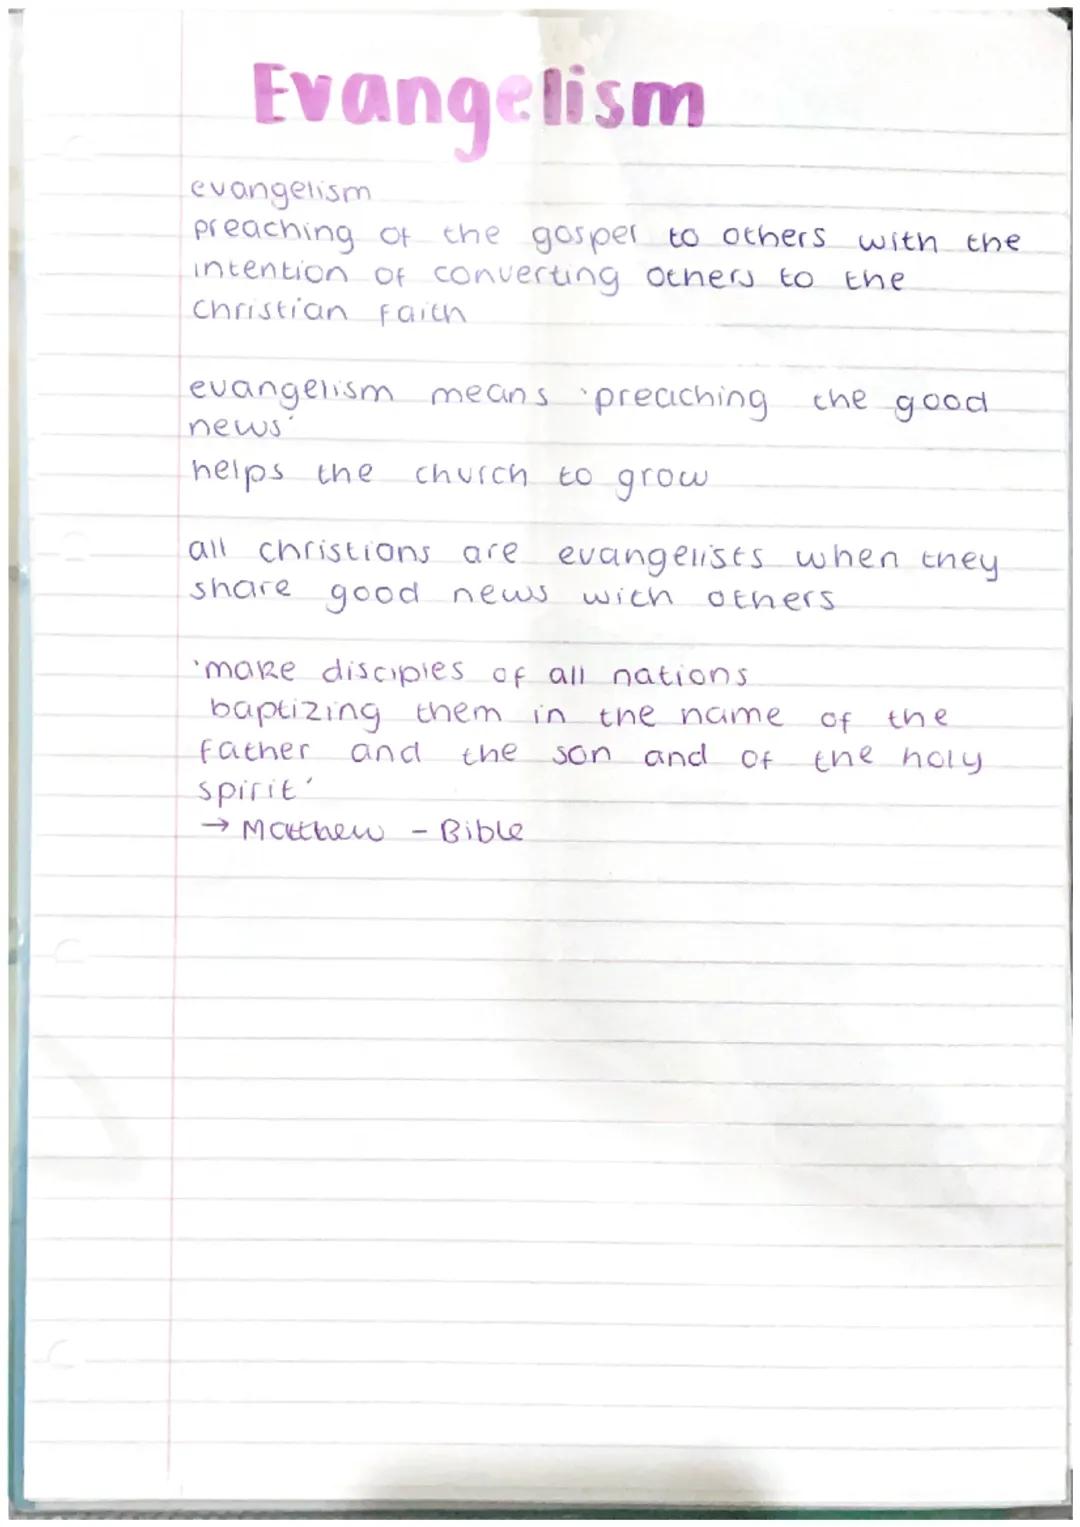 Evangelism
evangelism
preaching of the gospel to others with the
intention of converting others to the
Christian faith
evangelism means 'preaching the good
news'
helps the church to grow
all christians are evangelists when they
share good news with others
'make disciples of all nations
baptizing them in the name of the
father and the son and of the holy
spirit'
→ Matthew - Bible